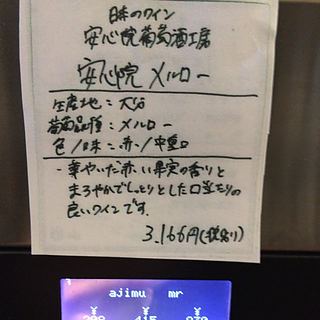 日本のワイン
安心院葡萄酒工房
安心院 メルロー
生産地：大分
葡萄品種：メルロー
色/味：赤/中重口
・華やいだ赤い果実の香りと
まろやかでしっとりとした口当たりの
良いワインです。
3,166円(税込)
ajimu mr
¥ ¥ ¥